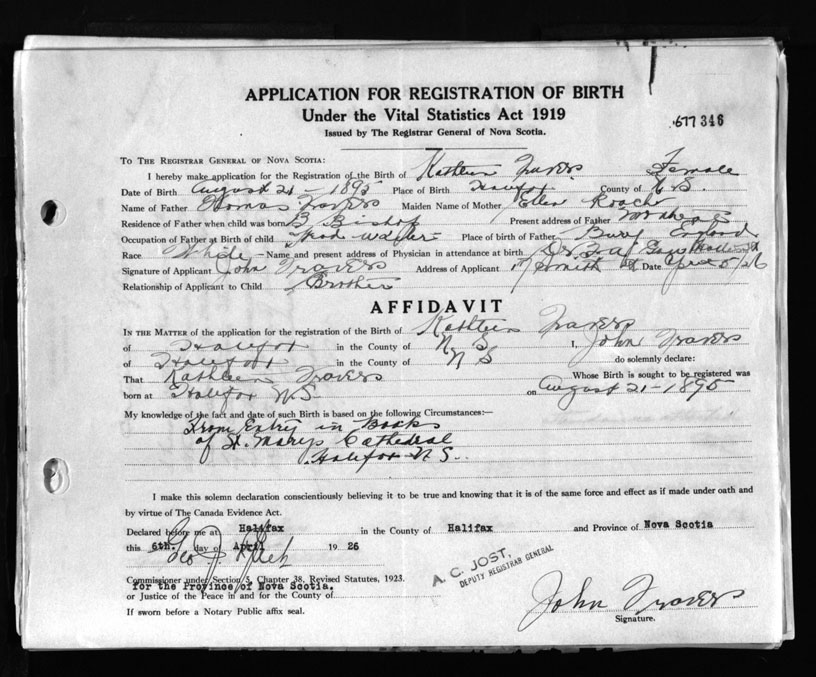 APPLICATION FOR REGISTRATION OF BIRTH
Under the Vital Statistics Act 1919
Issued by The Registrar General of Nova Scotia.
677346
TO THE REGISTRAR GENERAL OF NOVA SCOTIA:
I hereby make application for the Registration of the Birth of Kathleen Travers Female
Date of Birth August 21-1895 Place of Birth Halifax County of
Name of Father Thomas Travers Maiden Name of Mother Ellen Roach
Residence of Father when child was born B Bishop Present address of Father
Occupation of Father at Birth of child Place of birth of Father Bury England
Race White Name and present address of Physician in attendance at birth Dr.
Signature of Applicant John Travers Address of Applicant Date April 5/26
Relationship of Applicant to Child Brother
AFFIDAVIT
IN THE MATTER of the application for the registration of the Birth of Kathleen Travers
of Halifax in the County of N S I, John Travers
of Halifax in the County of N S do solemnly declare:
That Kathleen Travers Whose Birth is sought to be registered was
born at Halifax N.S on August 21-1895
My knowledge of the fact and date of such Birth is based on the following Circumstances:—
From Entry in Books
of St. Marys Cathedral
Halifax N.S.
I make this solemn declaration conscientiously believing it to be true and knowing that it is of the same force and effect as if made under oath and
by virtue of The Canada Evidence Act.
Declared before me at Halifax in the County of Halifax and Province of Nova Scotia
this 6th. day of April 1926
Geo.
A. C. JOST,
DEPUTY REGISTRAR GENERAL
Commissioner under Section 5, Chapter 38, Revised Statutes, 1923.
for the Province of Nova Scotia.
or Justice of the Peace in and for the County of
John Travers
Signature.
If sworn before a Notary Public affix seal.